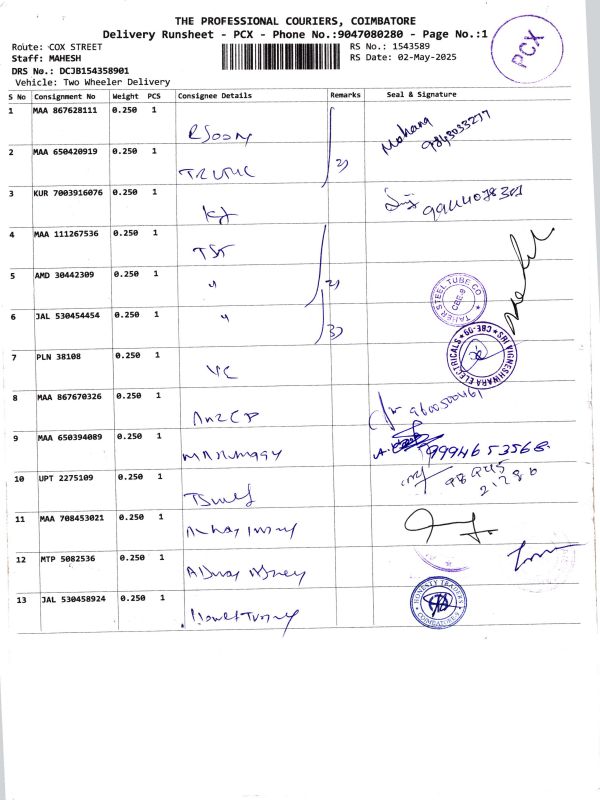 THE PROFESSIONAL COURIERS, COIMBATORE
Delivery Runsheet - PCX - Phone No.:9047080280 - Page No.:1
Route: COX STREET
RS No.: 1543589
Staff: MAHESH
RS Date: 02-May-2025
DRS No.: DCJB154358901
Vehicle: Two Wheeler Delivery
PCX
S No Consignment No Weight PCS Consignee Details Remarks Seal & Signature
1 MAA 867628111 0.250 1
Mohana
9843033277
2 MAA 650420919 0.250 1
2)
3 KUR 7003916076 0.250 1
4 MAA 111267536 0.250 1
TST
5 AMD 30442309 0.250 1 "
2)
TAHER STEEL TUBE CO
CBE-9
6 JAL 530454454 0.250 1 "
3)
SRI VIGNESHWARA ELECTRICALS
CBE-09
7 PLN 38108 0.250 1
VC
8 MAA 867670326 0.250 1
9600500461
9 MAA 650394089 0.250 1
9994653568
10 UPT 2275109 0.250 1
11 MAA 708453021 0.250 1
12 MTP 5082536 0.250 1
13 JAL 530458924 0.250 1
HONESTY TRADERS
COIMBATORE